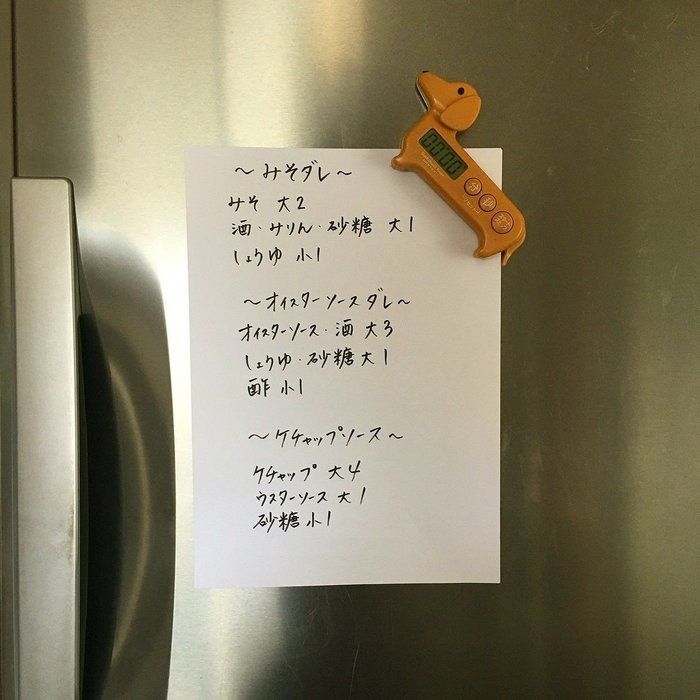 ～みそダレ～
みそ 大2
酒・みりん・砂糖 大1
しょうゆ 小1
～オイスターソースダレ～
オイスターソース・酒 大3
しょうゆ・砂糖 大1
酢 小1
～ケチャップソース～
ケチャップ 大4
ウスターソース 大1
砂糖 小1
00:00
分
秒